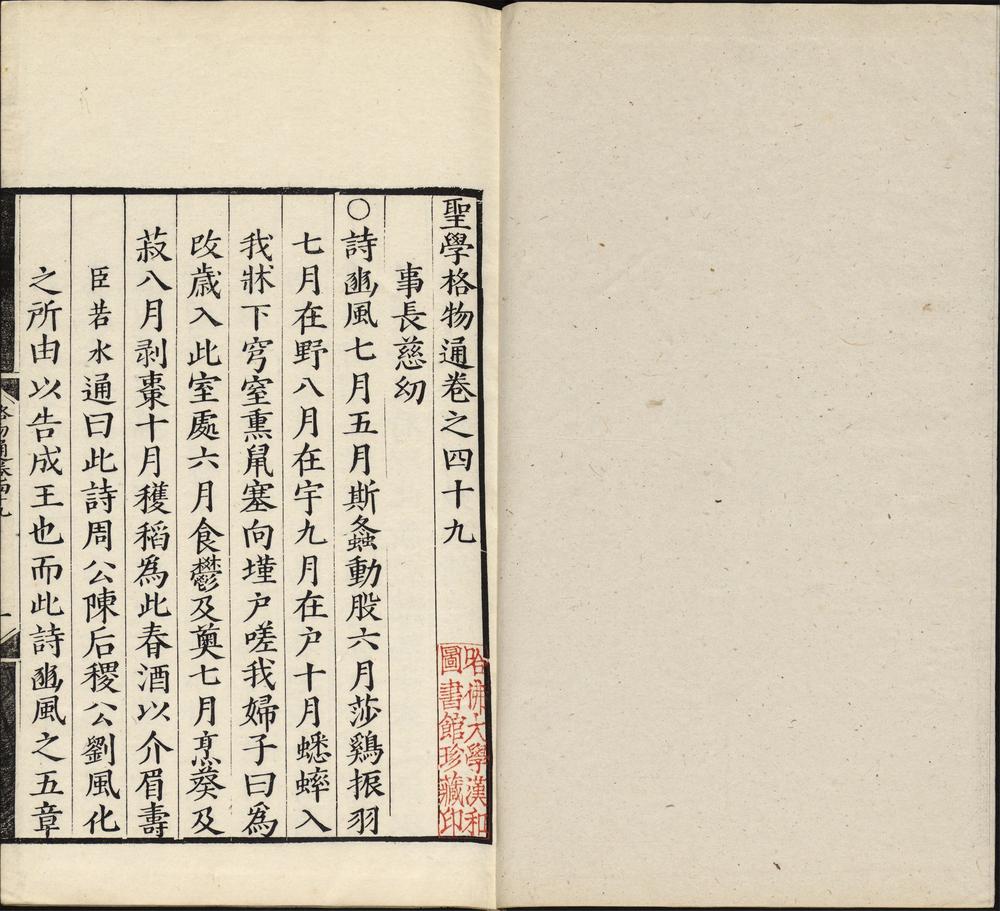 聖學格物通卷之四十九
事長慈幼
○詩豳風七月五月斯螽動股六月莎鷄振羽
七月在野八月在宇九月在户十月蟋蟀入
我牀下穹窒熏鼠塞向墐户嗟我婦子曰為
改歲入此室處六月食鬱及薁七月烹葵及
菽八月剥棗十月穫稻為此春酒以介眉壽
臣若水通曰此詩周公陳后稷公劉風化
之所由以告成王也而此詩豳風之五章
格物通卷四十九
一
哈佛大學漢和
圖書館珍藏印